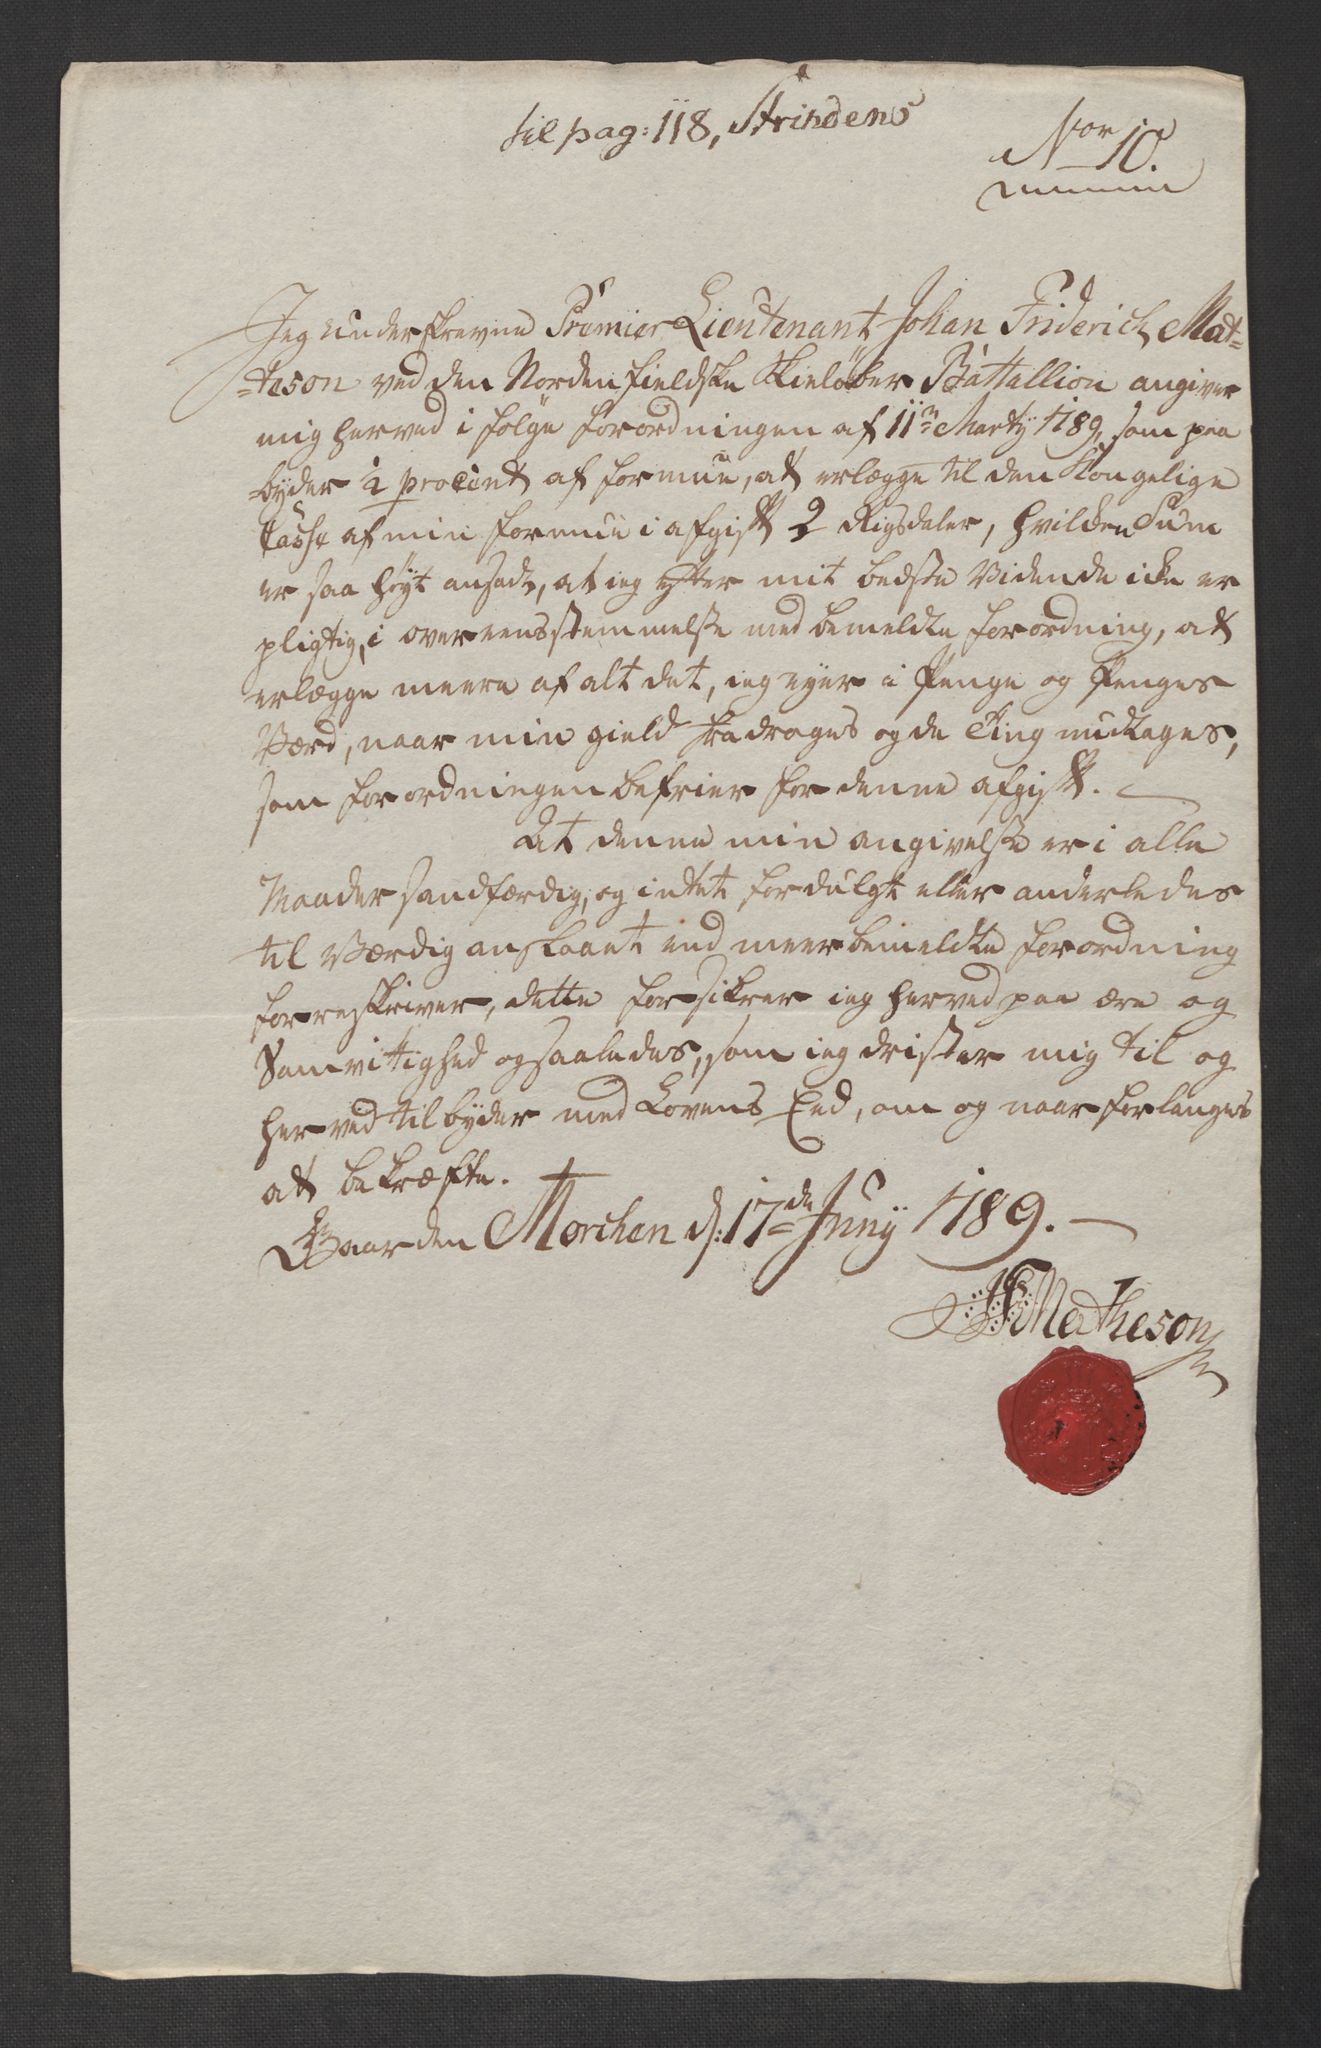 til pag: 118, Strindens
No 10.
Jeg underskrevne Premier Lieutenant Johan Friderich Mat=
=teson ved den Nordenfieldske Skielöber Battallion angiver
mig herved i følge forordningen af 11te Martÿ 1789, som paa
bÿder ½ procent af formue, at erlægge til den Kongelige
Casse af min formue i afgift 2 Rigsdaler, hvilken Sum
er saa høyt ansadt, at ieg efter mit bedste Vidende icke er
pligtig, i overeensstemmelse med bemeldte forordning, at
erlægge meere af alt det, ieg eyer i Penge og Penges
Værd, naar min gield fradrages og de Ting undtages,
som forordningen befrier for denne afgift.
At denne min angivelse er i alle
Maader sandfærdig, og intet fordulgt eller anderledes
til Værdig anslaaet end meerbemeldte forordning
foreskriver, dette forsikrer ieg herved paa ære og
Samvittighed ogsaaledes, som ieg drister mig til og
herved tilbÿder med Lovens Eed, om og naar forlanges
at bekræfte.
Gaarden Morchen d: 17de Junÿ 1789.
JFMatheson